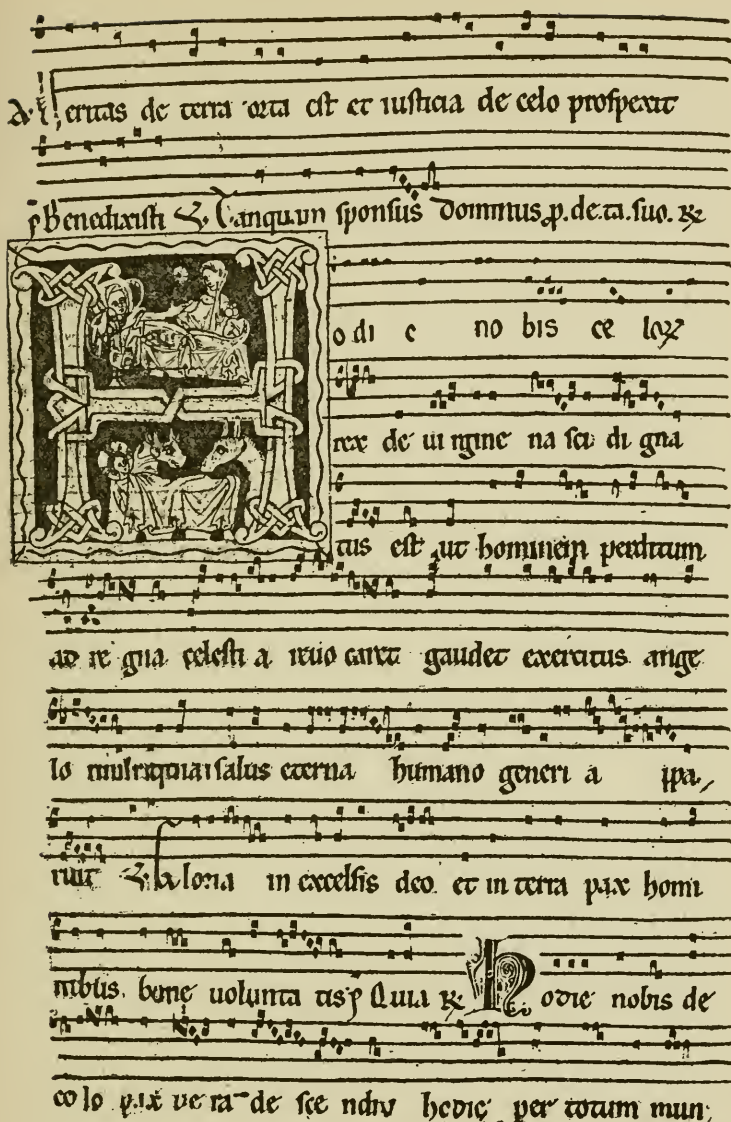 A. Veritas de terra orta est et iusticia de celo prospexit
p Benedixisti V. Tanquam sponsus Dominus p. de. ta. suo. R
Hodi e no bis ce loꝝ
rex de ui rgine na sci di gna
tus est ut hominem perditum
ad re gna celesti a reuo caret gaudet exercitus ange
lo salus eterna humano generi a ppa
ruit V. Gloria in excelsis deo et in terra pax homi
nibus bone uolunta tis p Quia R Hodie nobis de
ce lo pax ue ra de sce ndit hodie per totum mun